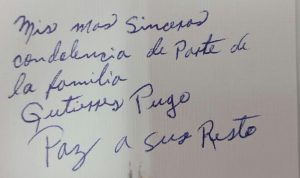 Mis mas Sinceras
condolencia de Parte de
la familia
Gutierres Pugo
Paz a sus Resto